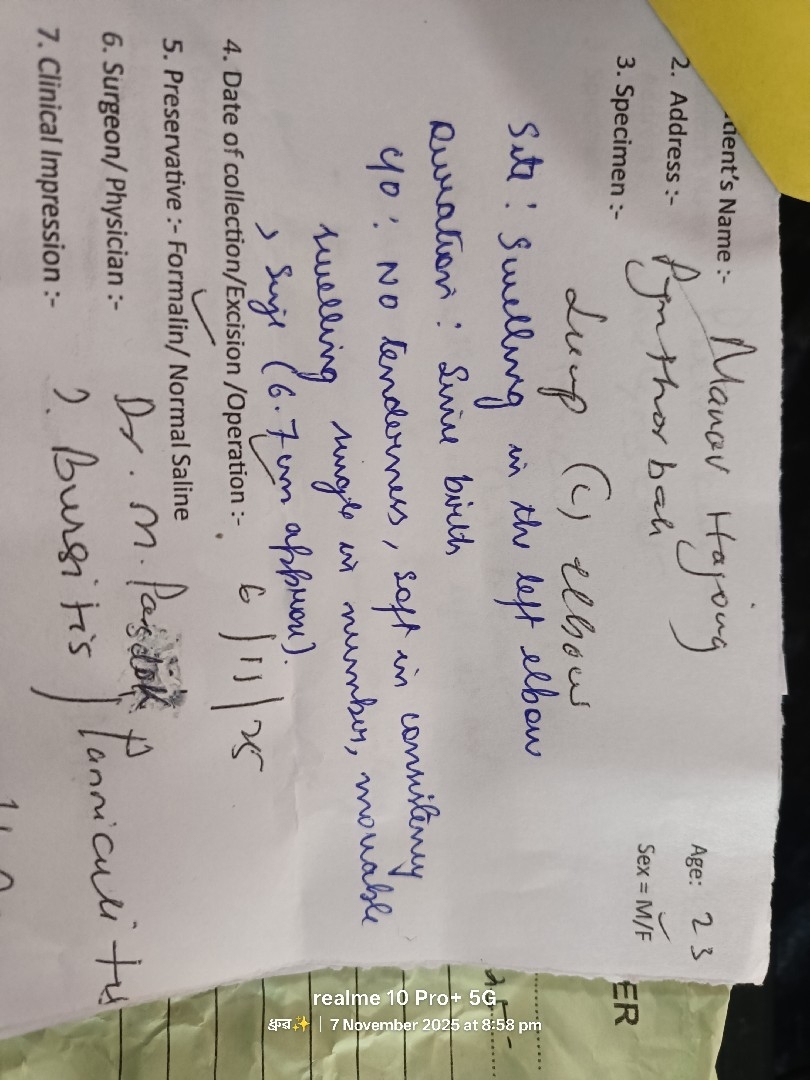 ient's Name :- Manav Hajong
Age: 23
2. Address :- Pynthorbah
Sex = M/F
3. Specimen :-
Lump (L) elbow
Site : Swelling in the left elbow
Duration : Since birth
C/O : NO tenderness, soft in consistency
swelling single in number, mouable
> Size (6.7cm approx).
4. Date of collection/Excision /Operation :- 6/11/25
5. Preservative :- Formalin/ Normal Saline
6. Surgeon/ Physician :- Dr. M.
7. Clinical Impression :- ?. Bursitis / Panniculitis
ER
realme 10 Pro+ 5G
ধ্রুব✨ | 7 November 2025 at 8:58 pm